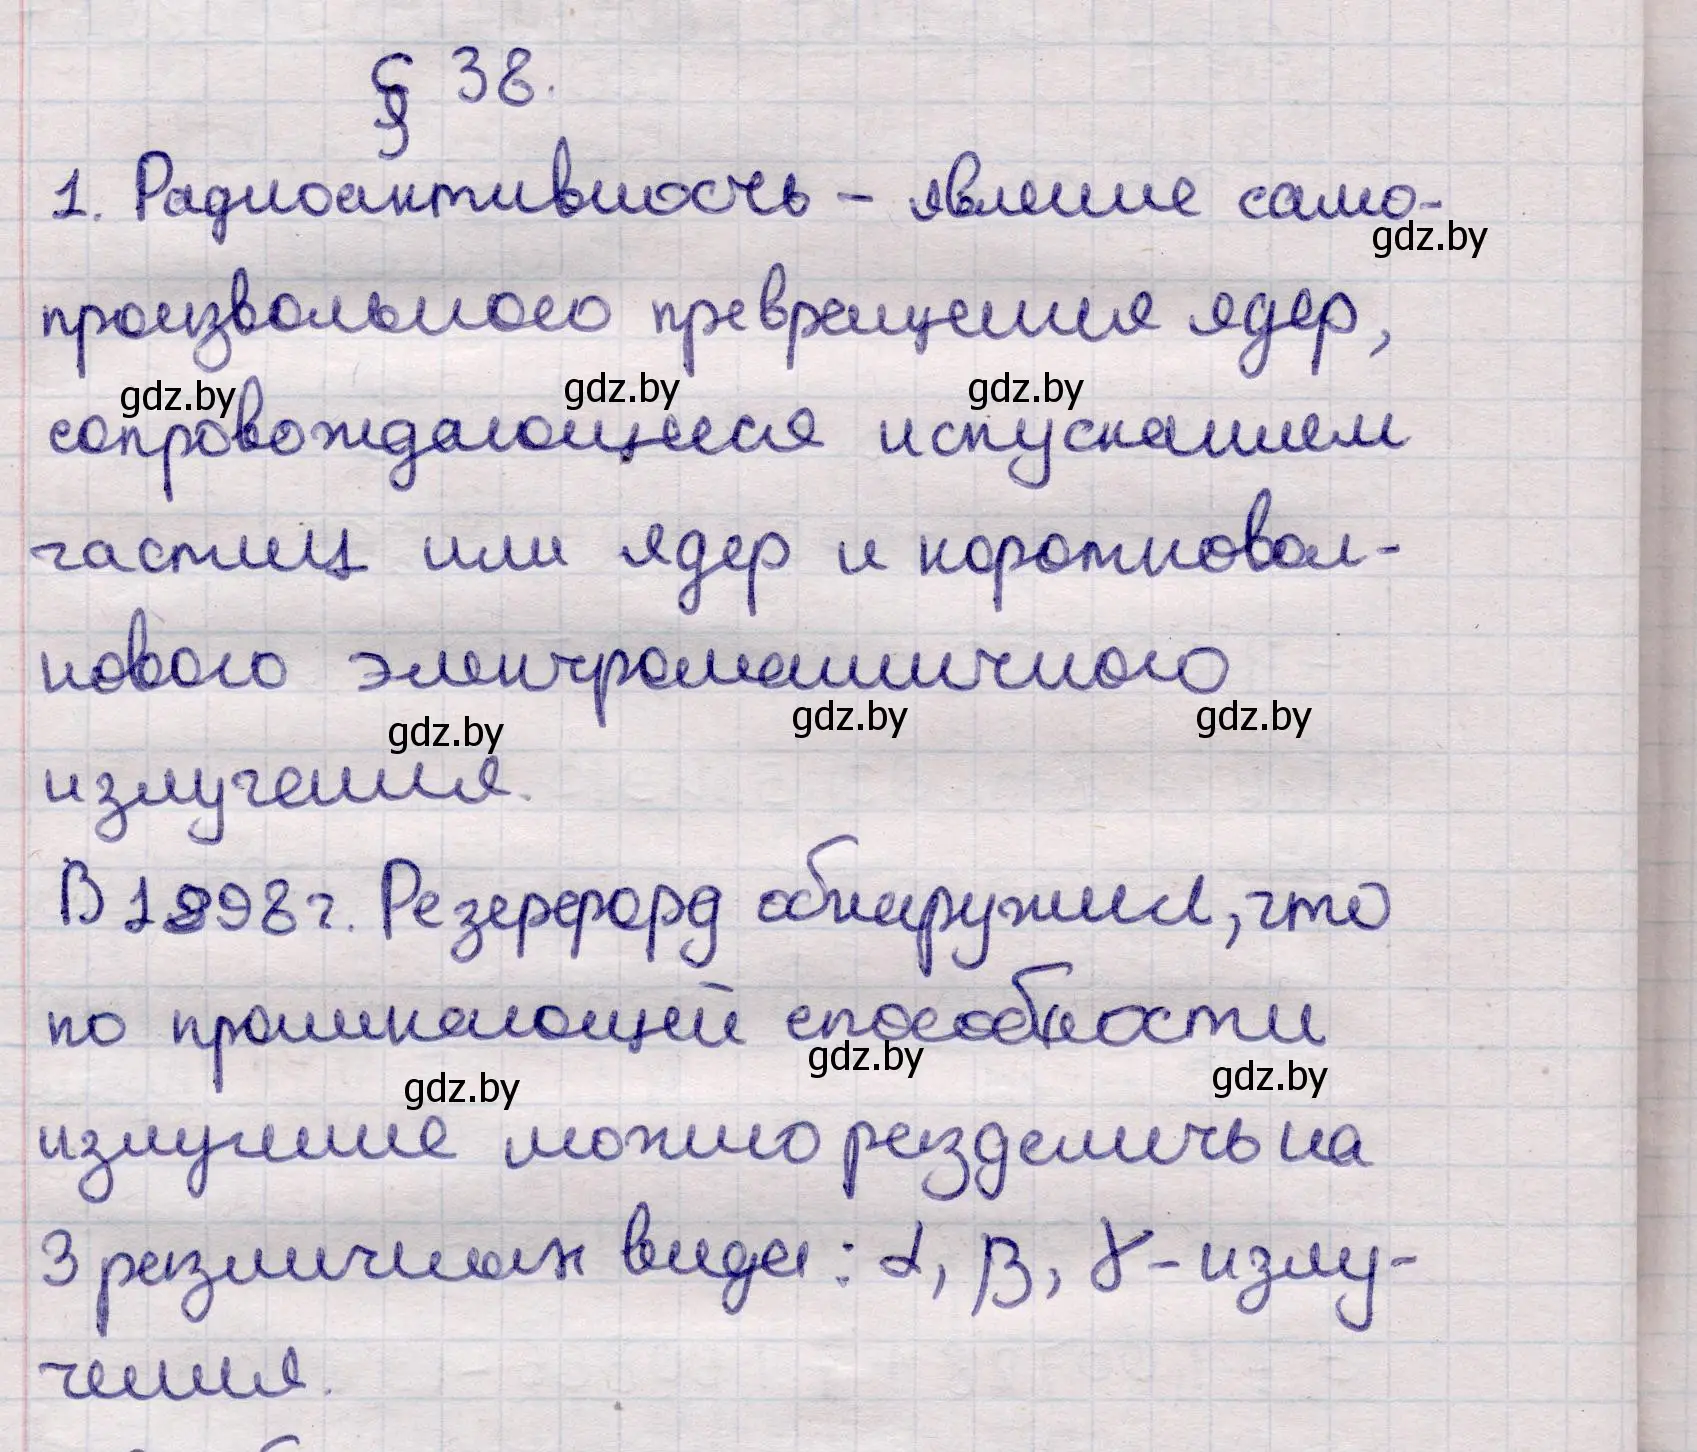 § 38.
1. Радиоактивность – явление само-
gdz.by
произвольного превращения ядер,
gdz.by gdz.by gdz.by
сопровождающееся испусканием
частиц или ядер и коротковол-
нового электромагнитного
gdz.by gdz.by gdz.by
излучения.
В 1898 г. Резерфорд обнаружил, что
по проникающей способности
gdz.by gdz.by gdz.by
излучение можно разделить на
3 различных вида: α, β, γ - излу-
чения.